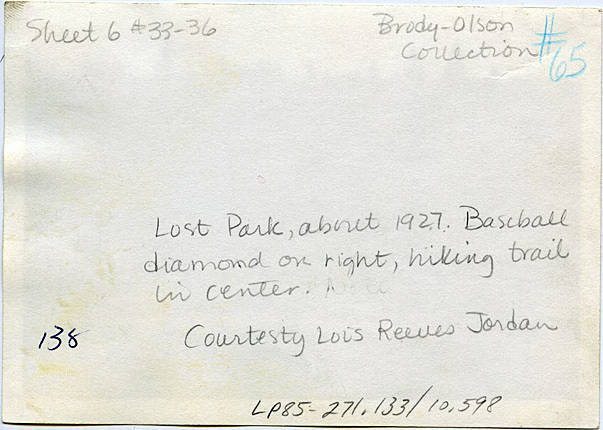 Sheet 6 #33-36
Brody-Olson
Collection
#65
Lost Park, about 1927. Baseball
diamond on right, hiking trail
in center.
138
Courtesty Lois Reeves Jordan
LP85-271.133/10,598